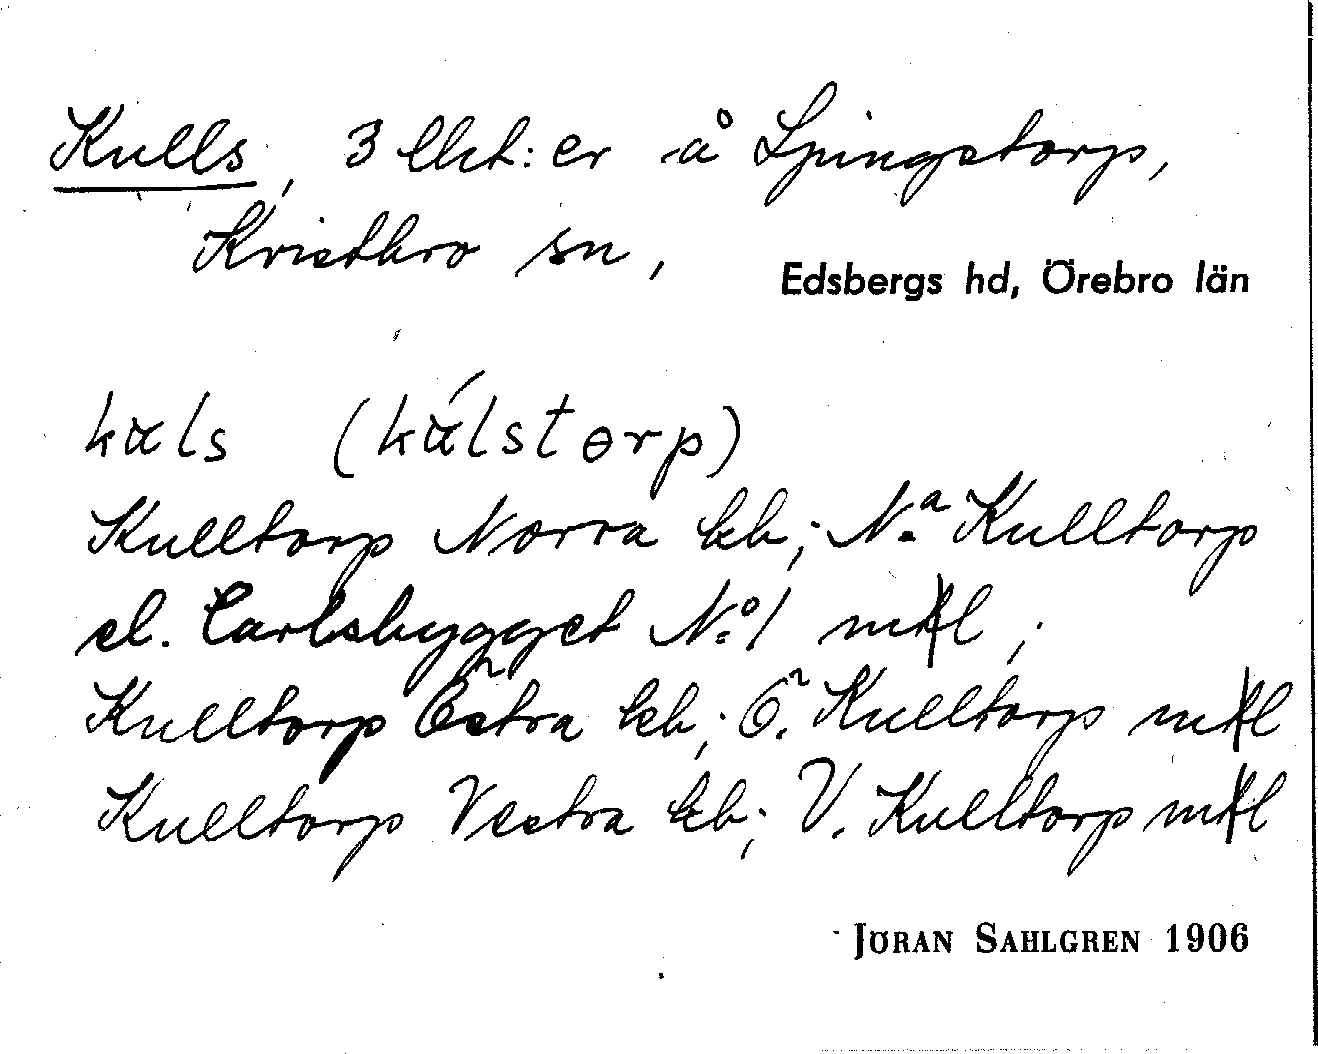 Kulls, 3 lht:er å Ljungstorp,
Kvistbro sn, Edsbergs hd, Örebro län
kɷls (kɷ́lstɵrp)
Kulltorp Norra kb; N:a Kulltorp
el. Carlsbygget N:o 1 mtl;
Kulltorp Östra kb; Ö. Kulltorp mtl
Kulltorp Vestra kb; V. Kulltorp mtl
JÖRAN SAHLGREN 1906